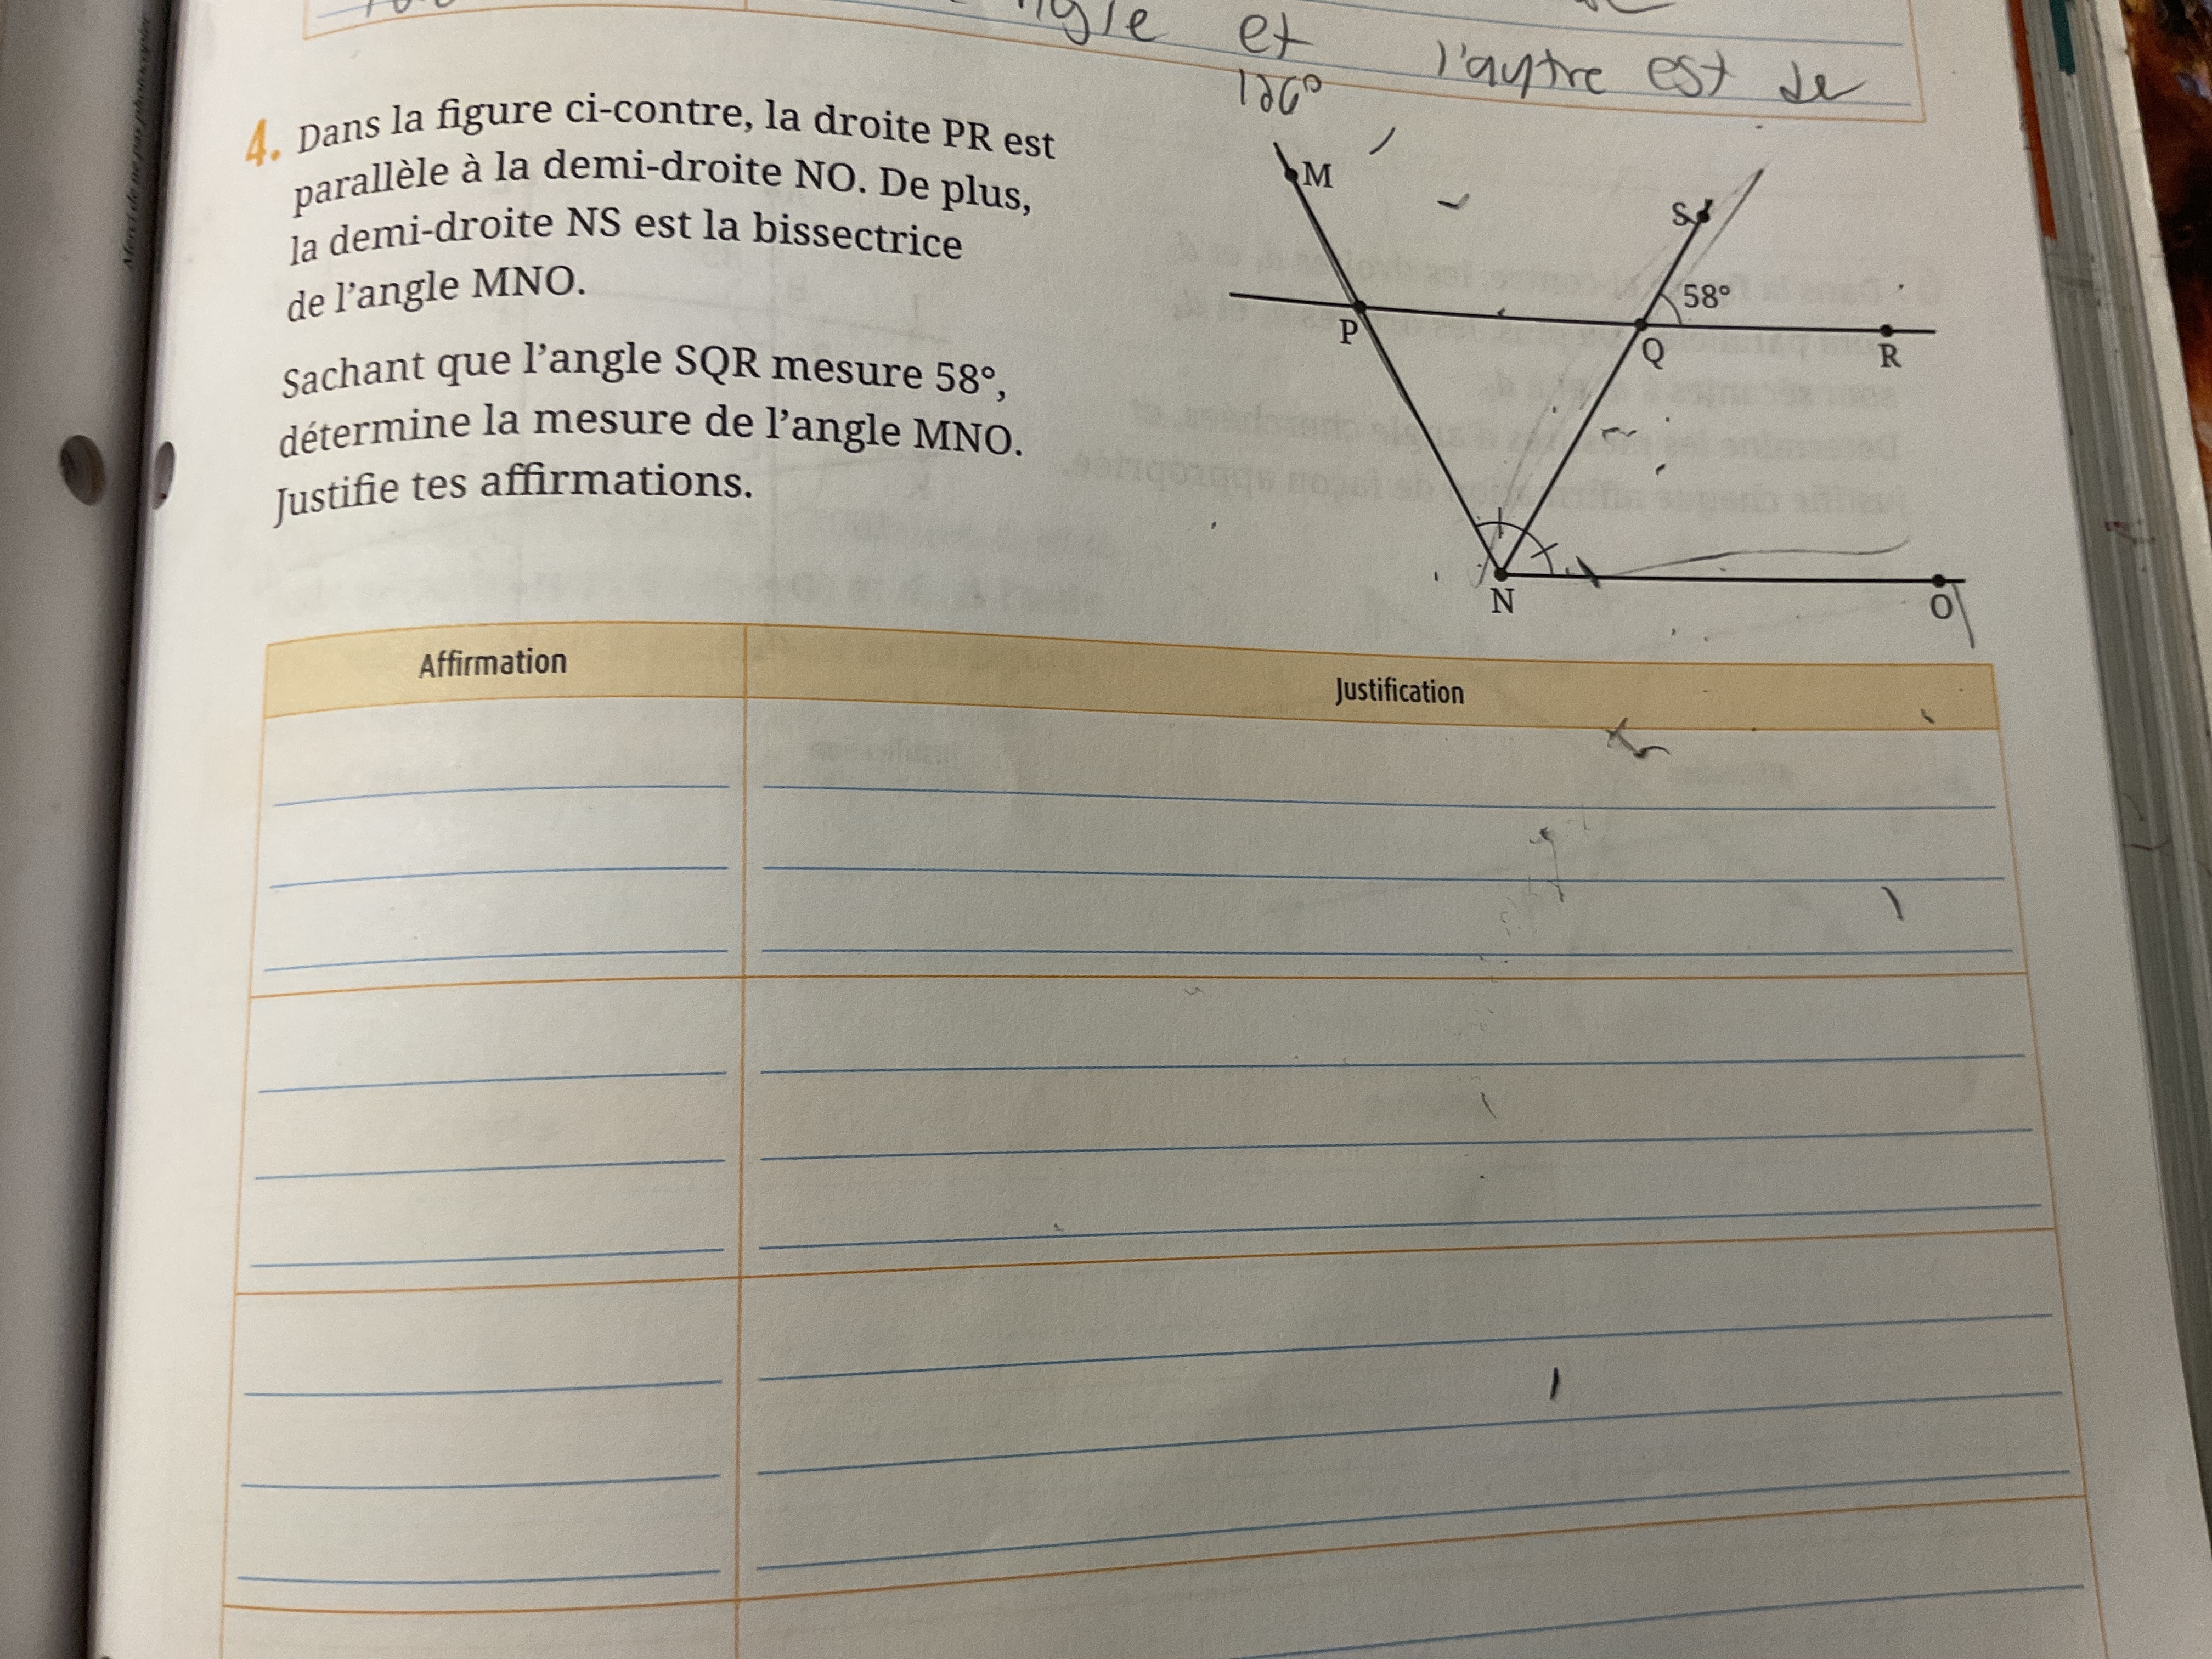 ngle et l'autre est de
126°
4. Dans la figure ci-contre, la droite PR est
parallèle à la demi-droite NO. De plus,
la demi-droite NS est la bissectrice
de l'angle MNO.
Sachant que l'angle SQR mesure 58°,
détermine la mesure de l'angle MNO.
Justifie tes affirmations.
M
S
58°
P
Q
R
N
O
Affirmation
Justification